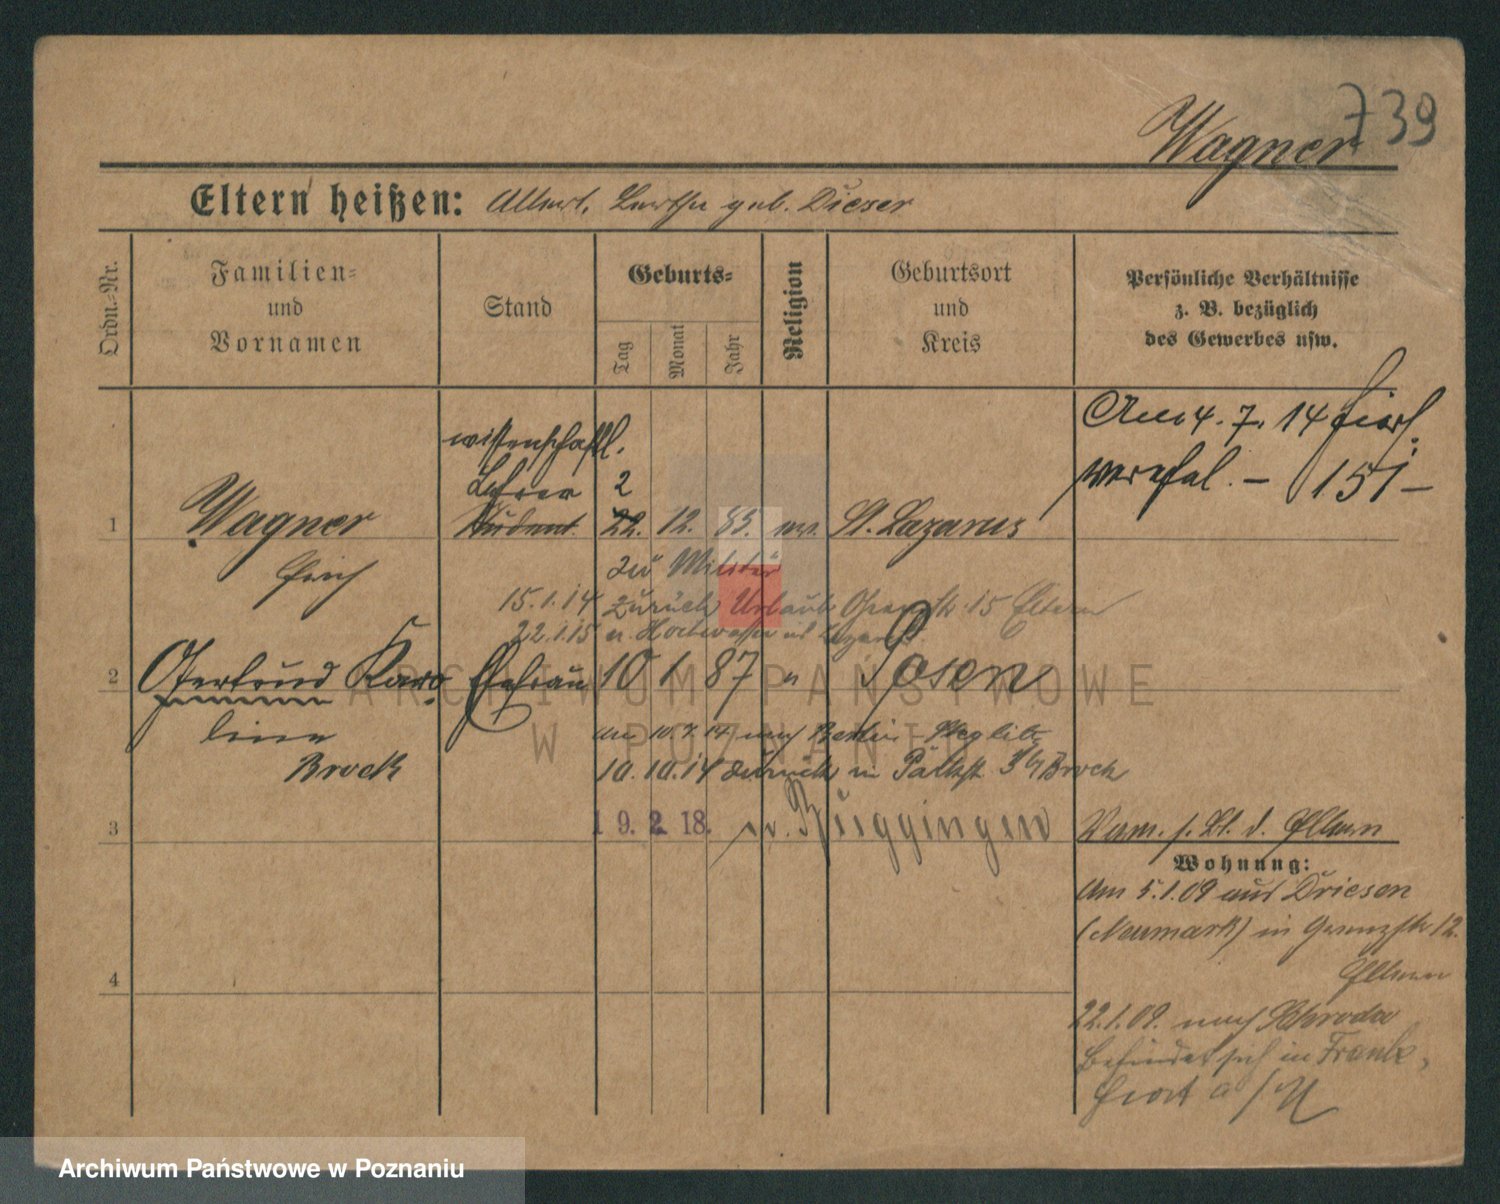 739
Wagner
Eltern heißen: Albert, Bertha geb. Dieser
Ordn.-Nr.
Familien-
und
Vornamen
Stand
Geburts-
Tag
Monat
Jahr
Religion
Geburtsort
und
Kreis
Persönliche Verhältnisse
z. B. bezüglich
des Gewerbes usw.
Am 4. 7. 14 hier
151
wissenschaftl.
Lehrer 2
1 Wagner Student 22. 12. 85. ev. St. Lazarus
Erich
zu Militär
15.1.14 zurück Urlaub 15 Eltern
22.1.15 n. Hochwasser
2 Gertrud Karo Ehefrau 10 1 87 " Posen
line
Brock
am 10.7.14 nach Berlin Steglitz
10.10.14 zurück in 34 Brock
3 19. 2. 18. n. Rüggingen
Eltern
Wohnung:
Am 5.1.09 aus Driesen
(Neumark) in Grenzstr 12.
Eltern
4
22.1.09. nach Schroda
Befindet sich in Frank-
furt a/M
ARCHIWUM PAŃSTWOWE
W POZNANIU
Archiwum Państwowe w Poznaniu